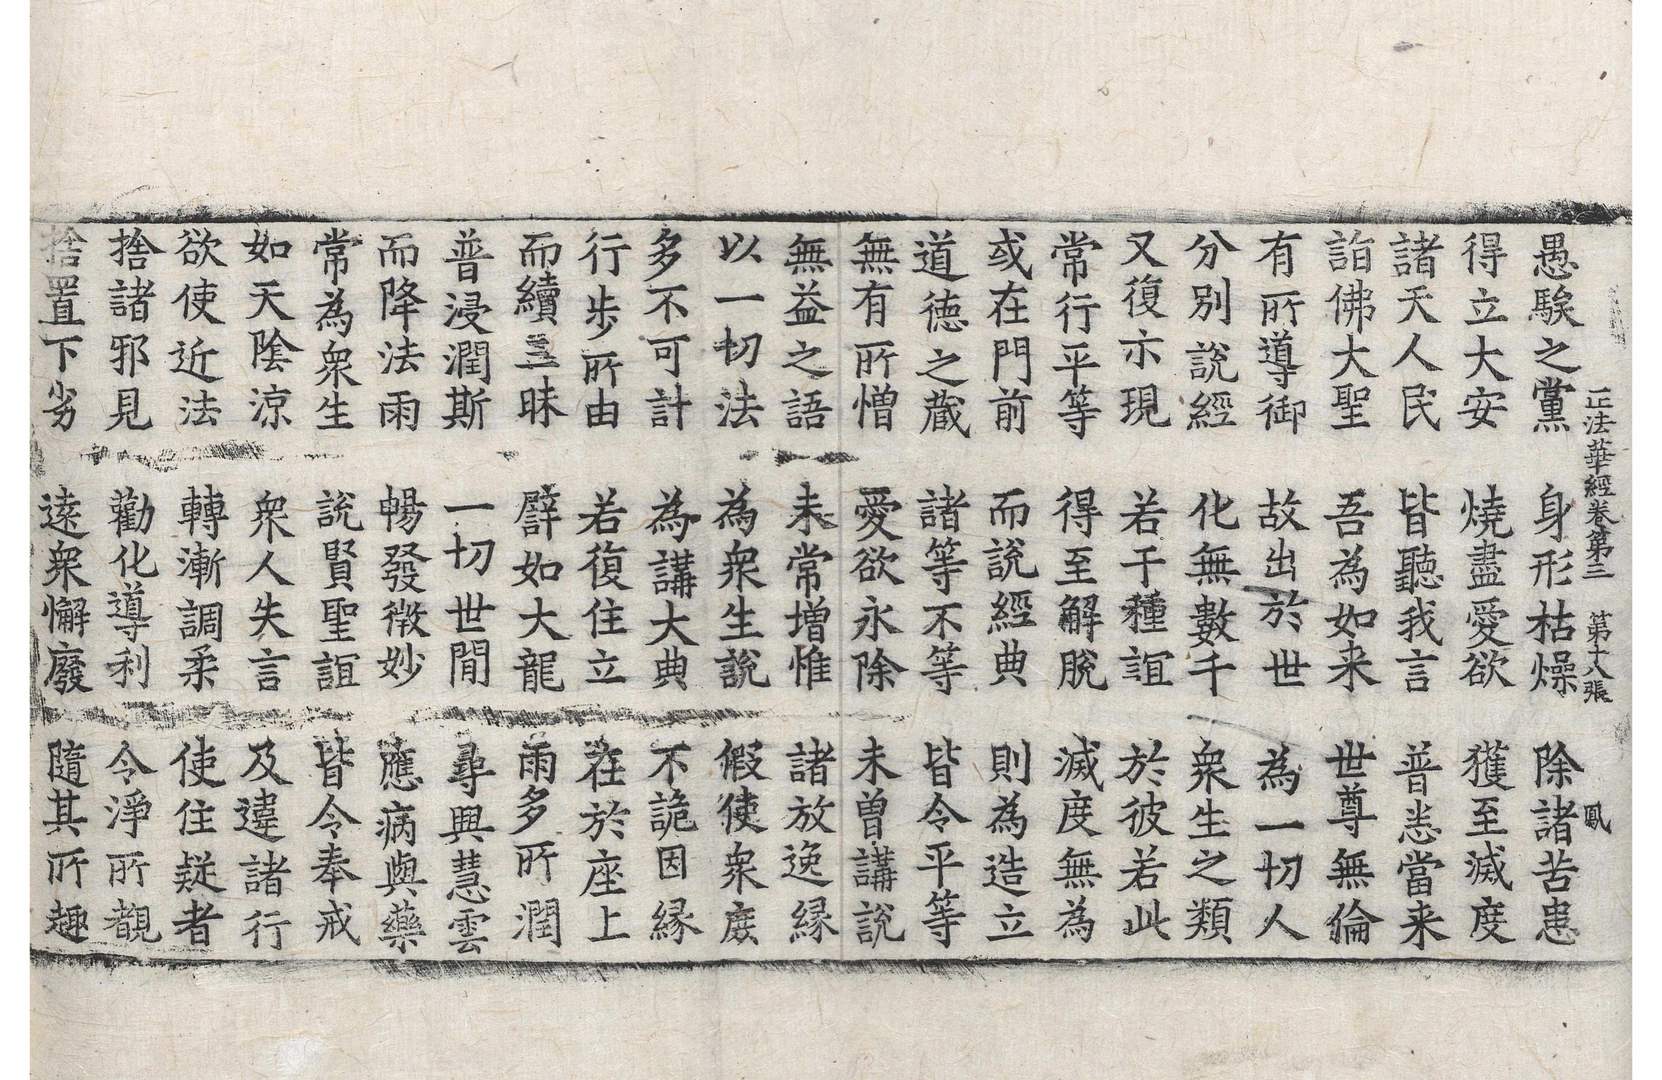 正法華經卷第三　第十八張　鳳
愚騃之黨　身形枯燥　除諸苦患
得立大安　燒盡愛欲　獲至滅度
諸天人民　皆聽我言　普悉當来
詣佛大聖　吾為如来　世尊無倫
有所導御　故出於世　為一切人
分別說經　化無數千　衆生之類
又復示現　若干種誼　於彼若此
常行平等　得至解脫　滅度無為
或在門前　而說經典　則為造立
道德之蔵　諸等不等　皆令平等
無有所憎　愛欲永除　未曽講說
無益之語　未常增惟　諸放逸縁
以一切法　為衆生說　假使衆庻
多不可計　為講大典　不詭因縁
行步所由　若復住立　在於座上
而續三昧　譬如大龍　雨多所潤
普浸潤斯　一切世閒　尋興慧雲
而降法雨　暢發微妙　應病與藥
常為衆生　說賢聖誼　皆令奉戒
如天陰涼　衆人失言　及違諸行
欲使近法　轉漸調柔　使住疑者
捨諸邪見　勸化導利　令淨所覩
捨置下劣　逺衆懈廢　隨其所趣